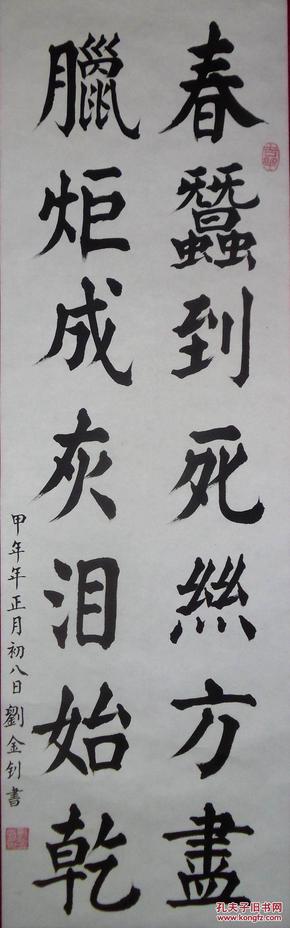 春蠶到死絲方盡
臘炬成灰泪始乾
甲年年正月初八日劉金釗書
孔夫子旧书网
www.kongfz.com